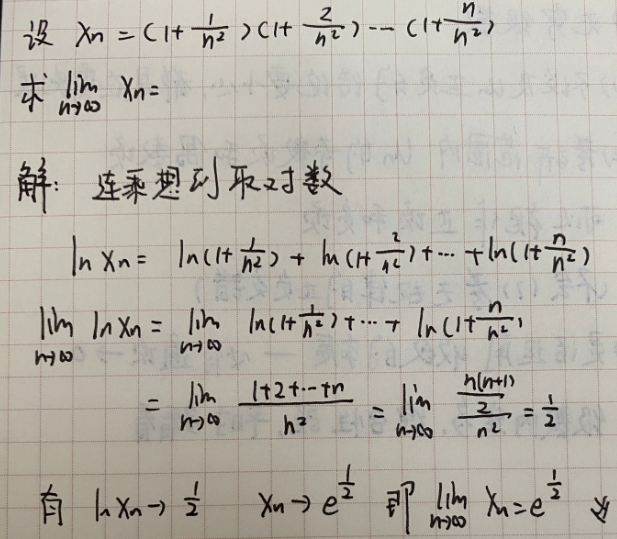 设 Xn = (1+1/n²)(1+2/n²)---(1+n/n²)
求 lim n→∞ Xn=
解: 连乘想到取对数
ln Xn = ln(1+1/n²) + ln(1+2/n²)+---+ln(1+n/n²)
lim n→∞ ln Xn = lim n→∞ ln(1+1/n²)+---+ ln(1+n/n²)
= lim n→∞ (1+2+--+n)/n² = lim n→∞ (n(n+1)/2)/n² = 1/2
有 ln Xn → 1/2 Xn → e^(1/2) 即 lim n→∞ Xn = e^(1/2)